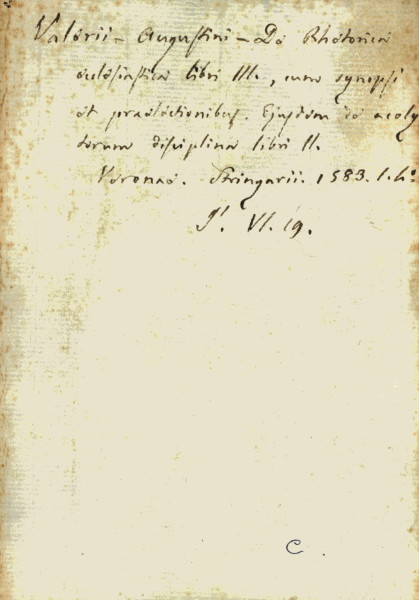 Valerii - Augustini - De Rhetorica
ecclesiastica libri III., cum synopsi
et praelectionibus. Ejusdem de acoly
torum disciplina libri II.
Veronae. Stringarii. 1583. 1. 4°
VI. 19.
C.